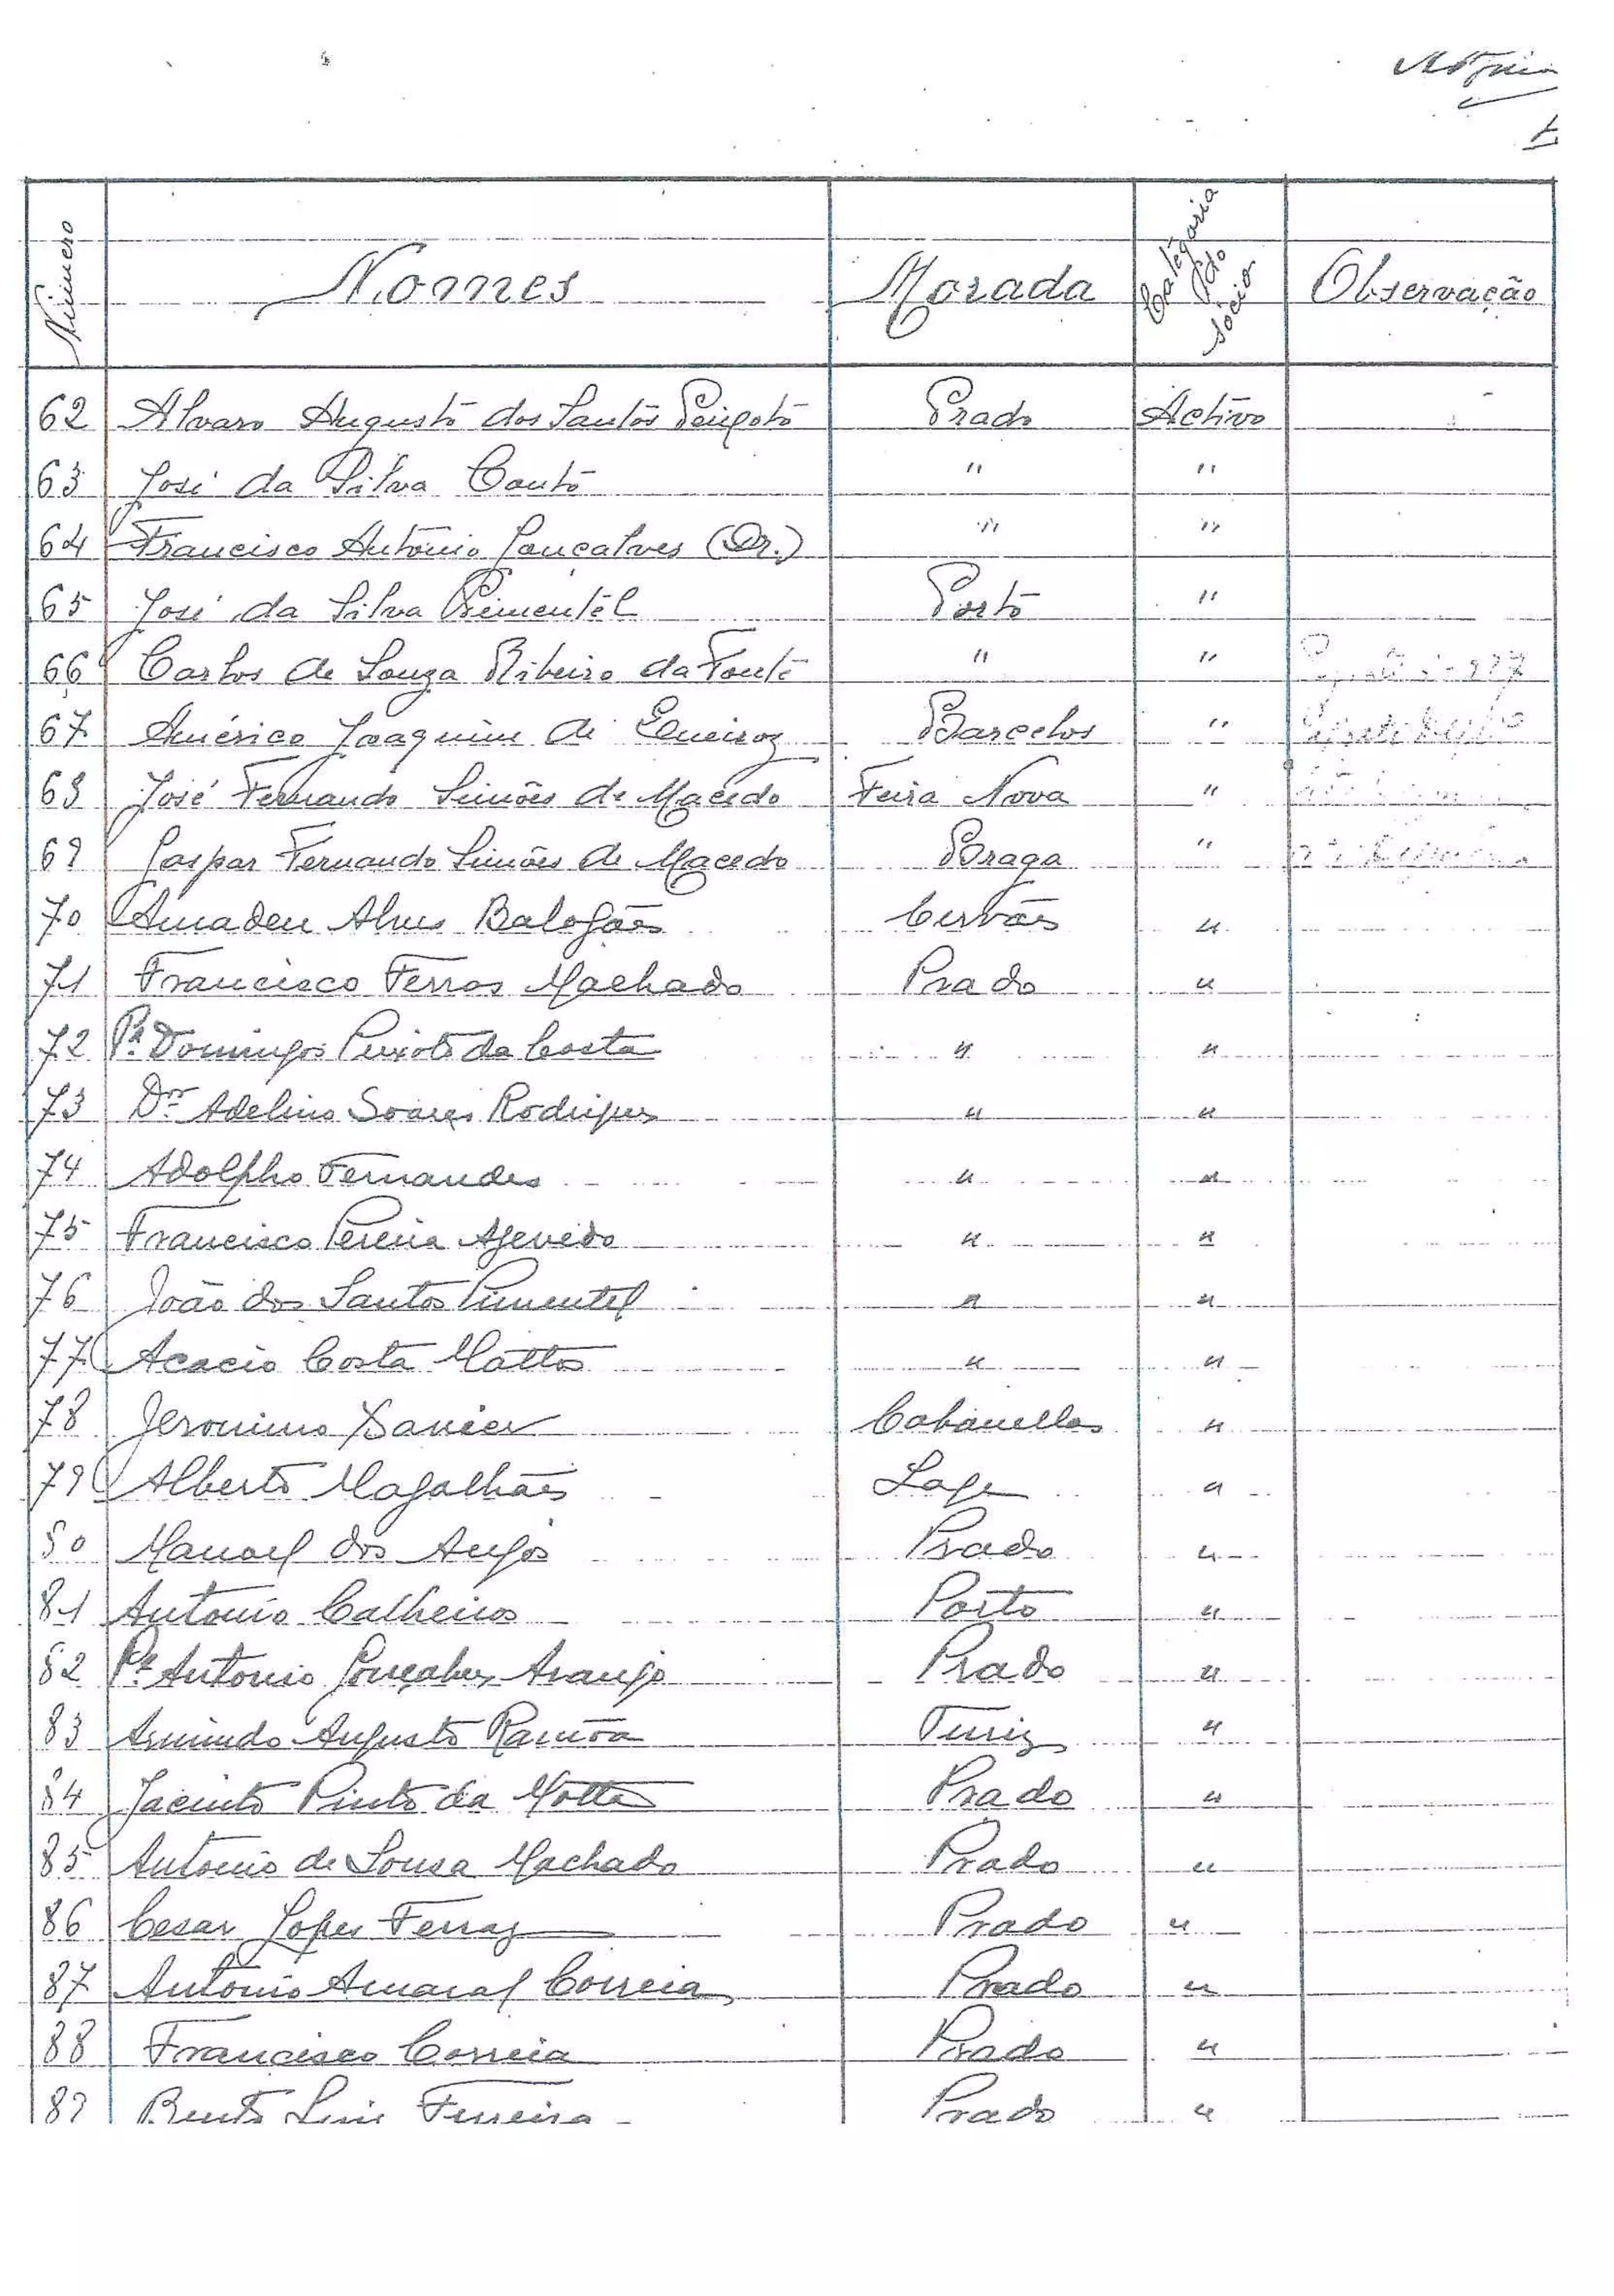 Número Nomes Morada Categoria do sócio Observação
62 Alvaro Augusto dos Santos Peixoto Prado Activo
63 José da Silva Couto " "
64 Francisco António Gonçalves (Dr.) " "
65 José da Silva Pimentel Porto "
66 Carlos de Souza Ribeiro da Fonte " "
67 Américo Joaquim de Queiroz Barcelos "
68 José Fernando Simões de Macedo Feira Nova "
69 Gaspar Fernando Simões de Macedo Braga "
70 Amadeu Alves Balogães Cervães "
71 Francisco Ferros Machado Prado "
72 Pe. Domingos Peixoto da Costa " "
73 Dr. Adelino Soares Rodrigues " "
74 Adolpho Fernandes " "
75 Francisco Pereira Azevedo " "
76 João dos Santos Pimentel " "
77 Acacio Costa Mattos " "
78 Jeronimo Xavier Cabanellas "
79 Alberto Magalhães Lage "
80 Manoel dos Anjos Prado "
81 Antonio Calheiros Porto "
82 Pe. Antonio Gonçalves Araujo Prado "
83 Armindo Augusto Ramôa Turiz "
84 Jacinto Pinto da Motta Prado "
85 Antonio de Sousa Machado Prado "
86 Cesar Lopes Ferraz Prado "
87 Antonio Amaral Correia Prado "
88 Francisco Correia Prado "
89 Bento Luiz Ferreira Prado "